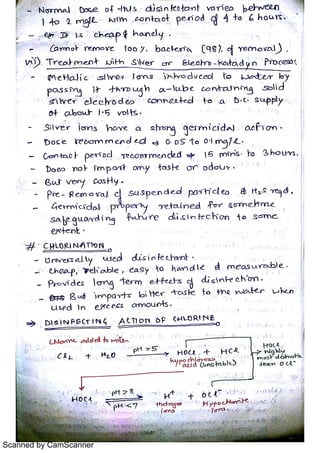 - Normal Dose of this disinfectant varies between
1 to 2 mg/L with contact period of 4 to 6 hours.
- It is cheap & handy.
- Cannot remove 100% bacteria (98% of removal).
vii) Treatment with Silver or Electro-Katadyn Process:
- Metallic silver ions introduced to water by
passing it through a tube containing solid
silver electrodes connected to a D.C. supply
of about 1.5 volts.
- Silver ions have a strong germicidal action.
- Dose recommended → 0.05 to 0.1 mg/L.
- Contact period recommended → 15 mins to 3 hours.
- Does not impart any taste or odour.
- But very costly.
- Pre-Removal of suspended particles & H₂S reqd.
- Germicidal property retained for sometime
safeguarding future disinfection to some
extent.
# CHLORINATION
- Universally used disinfectant.
- Cheap, reliable, easy to handle & measurable.
- Provides long term effects of disinfection.
- But imparts bitter taste to the water when
used in excess amounts.
→ DISINFECTING ACTION OF CHLORINE
Chlorine added to water
Cl₂ + H₂O pH >5 → HOCl + HCl
hypochlorous
acid (unstable)
HOCl
→ Highly
most destructive
than OCl⁻
HOCl pH >8 ⇌ pH <7 H⁺ + OCl⁻
Hydrogen Hypochlorite
ions ions.
Scanned by CamScanner